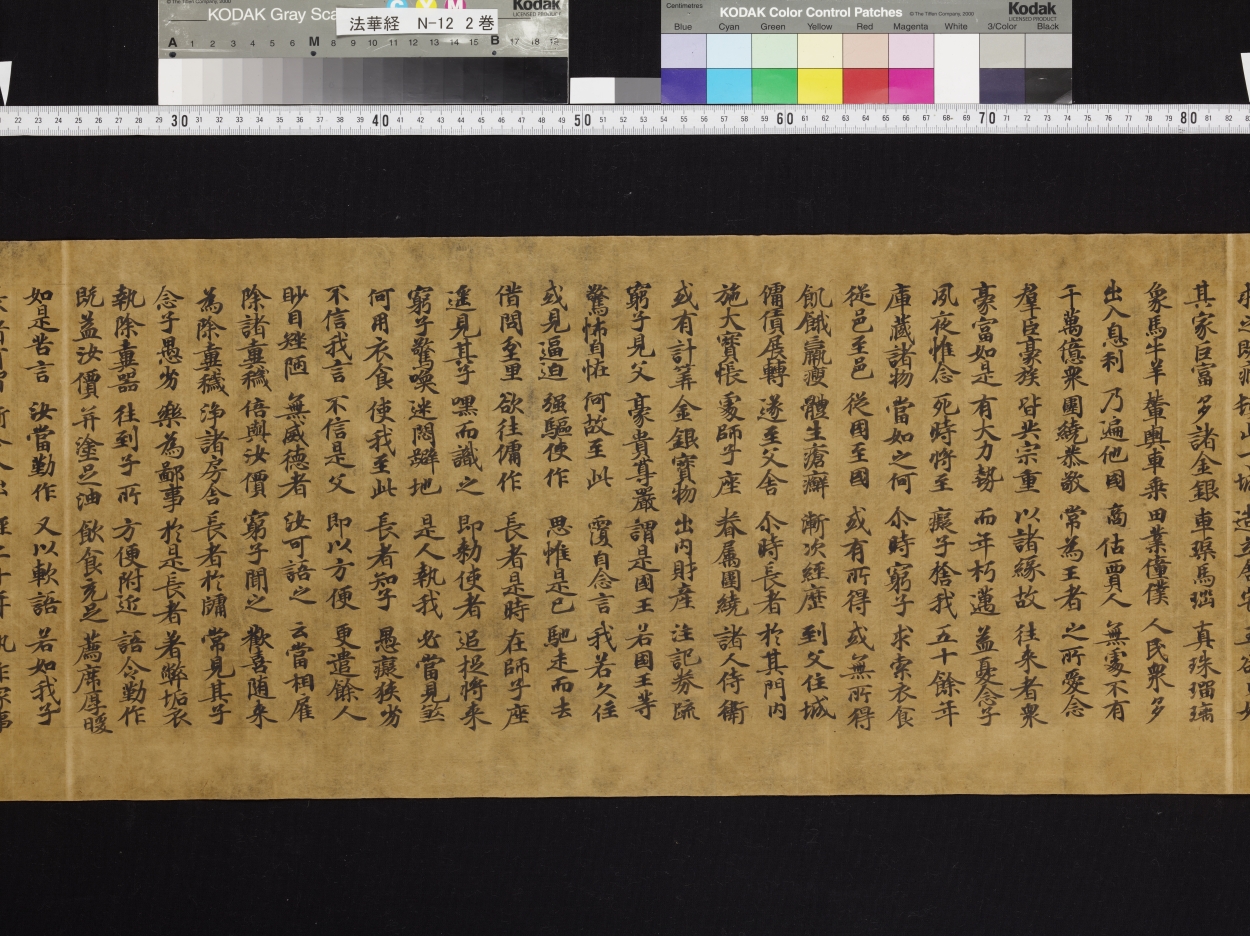 KODAK Gray Sca
© The Tiffen Company, 2000
Kodak
LICENSED PRODUCT
C Y M
法華経 N-12 2巻
A 1 2 3 4 5 6 M 8 9 10 11 12 13 14 15 B 17 18 19
Centimetres
KODAK Color Control Patches
© The Tiffen Company, 2000
Kodak
LICENSED PRODUCT
Blue Cyan Green Yellow Red Magenta White 3/Color Black
22 23 24 25 26 27 28 29 30 31 32 33 34 35 36 37 38 39 40 41 42 43 44 45 46 47 48 49 50 51 52 53 54 55 56 57 58 59 60 61 62 63 64 65 66 67 68 69 70 71 72 73 74 75 76 77 78 79 80 81 82
其家巨富 多諸金銀 車璖馬瑙 真珠瑠璃
象馬牛羊 輦輿車乗 田業僮僕 人民衆多
出入息利 乃遍他國 商估賈人 無處不有
千萬億衆 圍繞恭敬 常為王者 之所愛念
羣臣豪族 皆共宗重 以諸緣故 往来者衆
豪富如是 有大力勢 而年朽邁 益憂念子
夙夜惟念 死時将至 癡子捨我 五十餘年
庫蔵諸物 當如之何 尒時窮子 求索衣食
從邑至邑 從國至國 或有所得 或無所得
飢餓羸瘦 體生瘡癬 漸次經歴 到父住城
傭債展轉 遂至父舎 尒時長者 於其門内
施大寳帳 處師子座 眷属圍繞 諸人侍衛
或有計筭 金銀寳物 出内財産 注記券䟽
窮子見父 豪貴尊嚴 謂是國王 若國王等
驚怖自怪 何故至此 覆自念言 我若久住
或見逼迫 强驅使作 思惟是已 馳走而去
借問貧里 欲往傭作 長者是時 在師子座
遥見其子 嘿而識之 即勑使者 追捉将来
窮子驚喚 迷悶躃地 是人執我 必當見煞
何用衣食 使我至此 長者知子 愚癡狭劣
不信我言 不信是父 即以方便 更遣餘人
眇目矬陋 無威徳者 汝可語之 云當相雇
除諸糞穢 倍與汝價 窮子聞之 歡喜随来
為除糞穢 浄諸房舎 長者於牖 常見其子
念子愚劣 樂為鄙事 於是長者 著弊垢衣
執除糞器 往到子所 方便附近 語令勤作
既益汝價 并塗足油 飲食充足 薦席厚暖
如是苦言 汝當勤作 又以軟語 若如我子